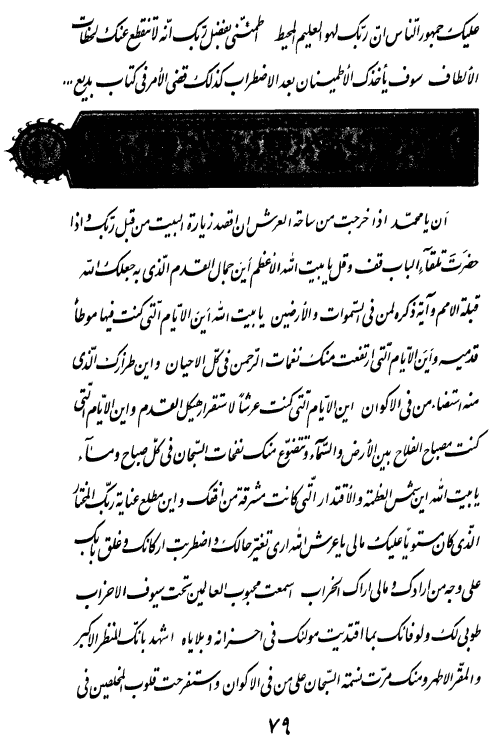 عليك جمهور النّاس انّ ربّك لهو العليم المحيط اطمئنّي بفضل ربّك انّه لا تنقطع عنك لحظات
الألطاف سوف يأخذك الأطمينان بعد الاضطراب كذلك قضي الأمر في كتاب بديع ...
أن يا محمّد اذا خرجت من ساحة العرش ان اقصد زيارة البيت من قبل ربّك و اذا
حضرت تلقآء الباب قف و قل يا بيت الله الأعظم أين جمال القدم الّذي به جعلك الله
قبلة الامم و آية ذكره لمن في السّموات و الأرضين يا بيت الله اين الايّام الّتي كنت فيها موطأ
قدميه و اين الأيّام الّتي ارتفعت منك نغمات الرّحمن في كلّ الاحيان و اين طرازك الّذي
منه استضاء من في الاكوان اين الايّام الّتي كنت عرشاً لاستقرار هيكل القدم و اين الايّام الّتي
كنت مصباح الفلاح بين الأرض و السّمآء و تتضوّع منك نفحات السّبحان في كلّ صباح و مسآء
يا بيت الله اين شمس العظمة و الأقتدار الّتي كانت مشرقة من افقك و اين مطلع عناية ربّك المختار
الّذي كان مستوياً عليك مالي يا عرش الله ارى تغيّر حالك و اضطربت اركانك و غلق بابك
على وجه من ارادك و مالي اراك الخراب اسمعت محبوب العالمين تحت سيوف الاحزاب
طوبى لك و لوفائك بما اقتديت مولئك في احزانه و بلاياه اشهد بانّك المنظر الاكبر
و المقرّ الاطهر و منك مرّت نسمة السّبحان على من في الاكوان و استفرحت قلوب المخلصين في
٧٩